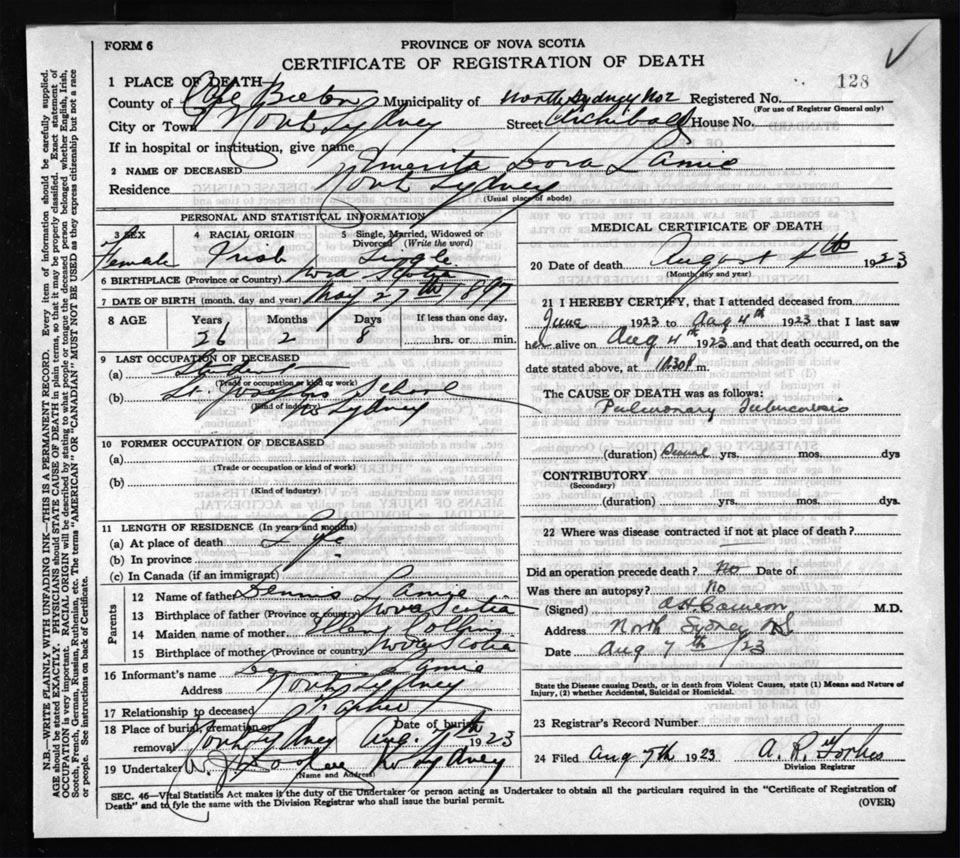 FORM 6
PROVINCE OF NOVA SCOTIA
CERTIFICATE OF REGISTRATION OF DEATH
128
1 PLACE OF DEATH
County of Cape Breton Municipality of North Sydney No 2 Registered No.
(For use of Registrar General only)
City or Town North Sydney Street Archibald House No.
If in hospital or institution, give name
2 NAME OF DECEASED Emerita Dora Lamie
Residence North Sydney
(Usual place of abode)
PERSONAL AND STATISTICAL INFORMATION
3 SEX 4 RACIAL ORIGIN 5 Single, Married, Widowed or Divorced (Write the word)
Female Irish Single
6 BIRTHPLACE (Province or Country) Nova Scotia
7 DATE OF BIRTH (month, day and year) May 27th 1897
8 AGE Years Months Days If less than one day,
26 2 8 hrs. or min.
9 LAST OCCUPATION OF DECEASED
(a) Student
(Trade or occupation or kind of work)
(b) St. Josephs School
(Kind of industry) No Sydney
10 FORMER OCCUPATION OF DECEASED
(a)
(Trade or occupation or kind of work)
(b)
(Kind of industry)
11 LENGTH OF RESIDENCE (In years and months)
(a) At place of death Life
(b) In province
(c) In Canada (if an immigrant)
Parents
12 Name of father Dennis Lamie
13 Birthplace of father (Province or country) Nova Scotia
14 Maiden name of mother Collins
15 Birthplace of mother (Province or country) Nova Scotia
16 Informant's name Lamie
Address North Sydney
17 Relationship to deceased
18 Place of burial, cremation or removal Date of burial
North Sydney Aug. 7th 1923
19 Undertaker No Sydney
(Name and Address)
MEDICAL CERTIFICATE OF DEATH
20 Date of death August 4th 1923
(Month, day and year)
21 I HEREBY CERTIFY, that I attended deceased from
June 1923 to Aug 4th 1923 that I last saw
her alive on Aug 4th 1923 and that death occurred, on the
date stated above, at m.
The CAUSE OF DEATH was as follows:
Pulmonary Tuberculosis
(duration) yrs. mos. dys
CONTRIBUTORY
(Secondary)
(duration) yrs. mos. dys.
22 Where was disease contracted if not at place of death?
Did an operation precede death? No Date of
Was there an autopsy? No
(Signed) A H Cameron M.D.
Address North Sydney NS
Date Aug 7th /23
State the Disease causing Death, or in death from Violent Causes, state (1) Means and Nature of
Injury, (2) whether Accidental, Suicidal or Homicidal.
23 Registrar's Record Number
24 Filed Aug 7th 1923 A. R. Forbes
Division Registrar
SEC. 46—Vital Statistics Act makes it the duty of the Undertaker or person acting as Undertaker to obtain all the particulars required in the "Certificate of Registration of
Death" and to fyle the same with the Division Registrar who shall issue the burial permit.
(OVER)
N.B.—WRITE PLAINLY WITH UNFADING INK—THIS IS A PERMANENT RECORD. Every item of information should be carefully supplied.
AGE should be stated EXACTLY. PHYSICIANS should STATE CAUSE OF DEATH in plain terms, so that it may be properly classified. Exact statement of
OCCUPATION is very important. RACIAL ORIGIN will be described by stating to what people or tongue the deceased person belonged whether English, Irish,
Scotch, French, German, Russian, Ruthenian, etc. The terms "AMERICAN" OR "CANADIAN" MUST NOT BE USED as they express citizenship but not a race
or people. See instructions on back of Certificate.